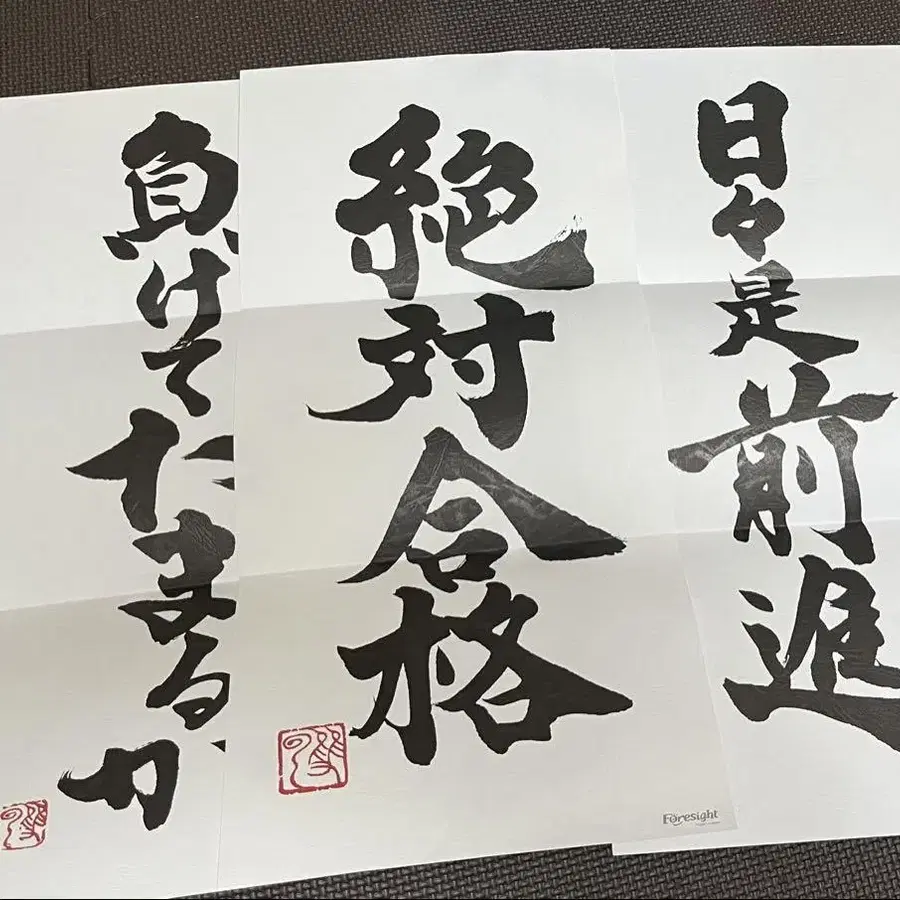 日々是前進
絶対合格
負けてたまるか
Foresight